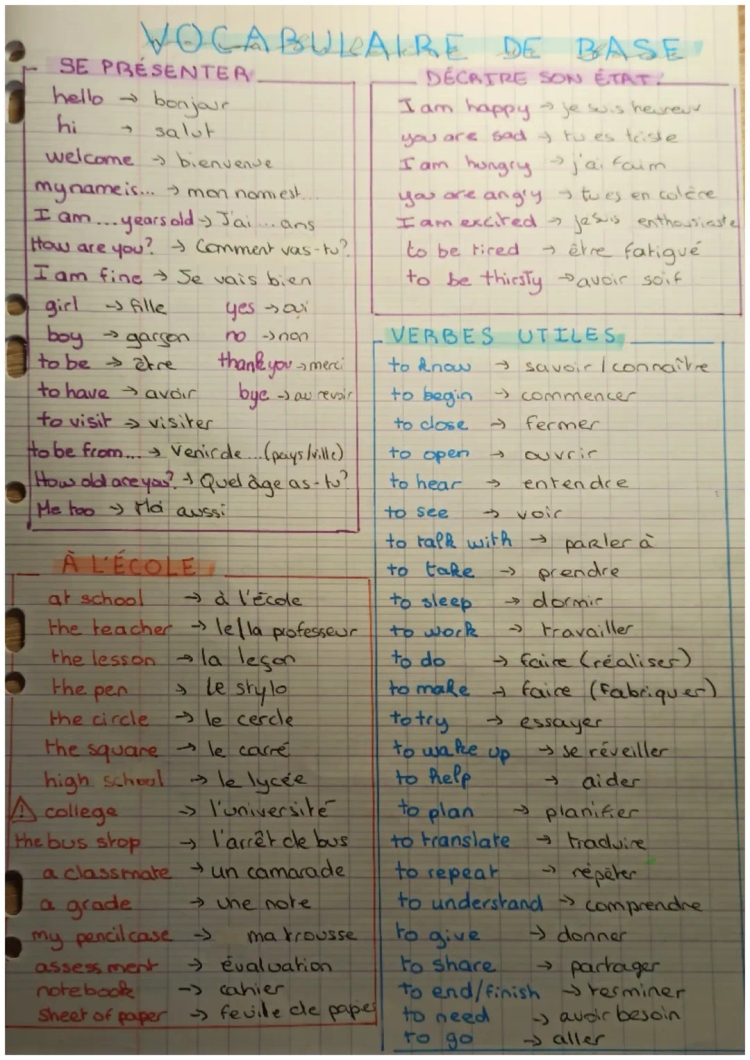 VOCABULAIRE DE BASE
SE PRÉSENTER
hello → bonjour
hi → salut
welcome → bienvenue
my name is... → mon nom est...
I am ... years old → J'ai ... ans
How are you? → Comment vas-tu?
I am fine → Je vais bien
girl → fille yes → oui
boy → garçon no → non
to be → être thank you → merci
to have → avoir bye → au revoir
to visit → visiter
to be from... → venir de ...(pays/ville)
How old are you? → Quel âge as-tu?
Me too → Moi aussi
À L'ÉCOLE
at school → à l'école
the teacher → le/la professeur
the lesson → la leçon
the pen → le stylo
the circle → le cercle
the square → le carré
high school → le lycée
⚠ college → l'université
the bus stop → l'arrêt de bus
a classmate → un camarade
a grade → une note
my pencil case → ma trousse
assessment → évaluation
notebook → cahier
sheet of paper → feuile de papier
DÉCRIRE SON ÉTAT:
I am happy → je suis heureux
you are sad → tu es triste
I am hungry → j'ai faim
you are angry → tu es en colère
I am excited → je suis enthousiaste
to be tired → être fatigué
to be thirsty → avoir soif
VERBES UTILES
to know → savoir / connaître
to begin → commencer
to close → fermer
to open → ouvrir
to hear → entendre
to see → voir
to talk with → parler à
to take → prendre
to sleep → dormir
to work → travailler
to do → faire (réaliser)
to make → faire (fabriquer)
to try → essayer
to wake up → se réveiller
to help → aider
to plan → planifier
to translate → traduire
to repeat → répéter
to understand → comprendre
to give → donner
to share → partager
to end/finish → terminer
to need → avoir besoin
to go → aller